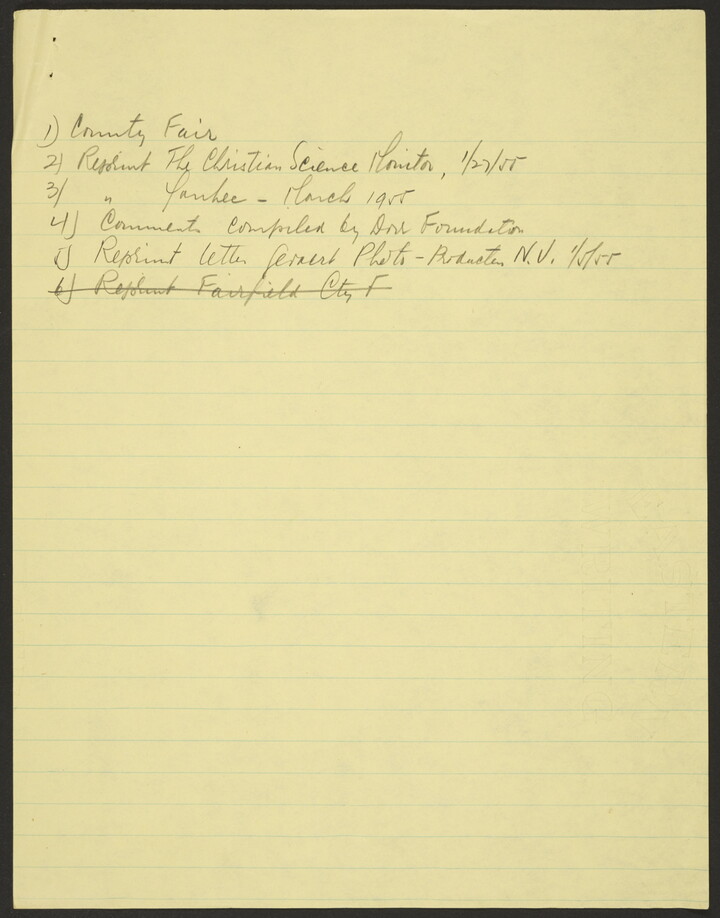 1) County Fair
2) Reprint The Christian Science Monitor, 1/27/55
3) " Yankee - March 1955
4) Comments compiled by Dorr Foundation
5) Reprint letter Gevaert Photo-Production N.V. 1/5/55
6) Reprint Fairfield Cty F